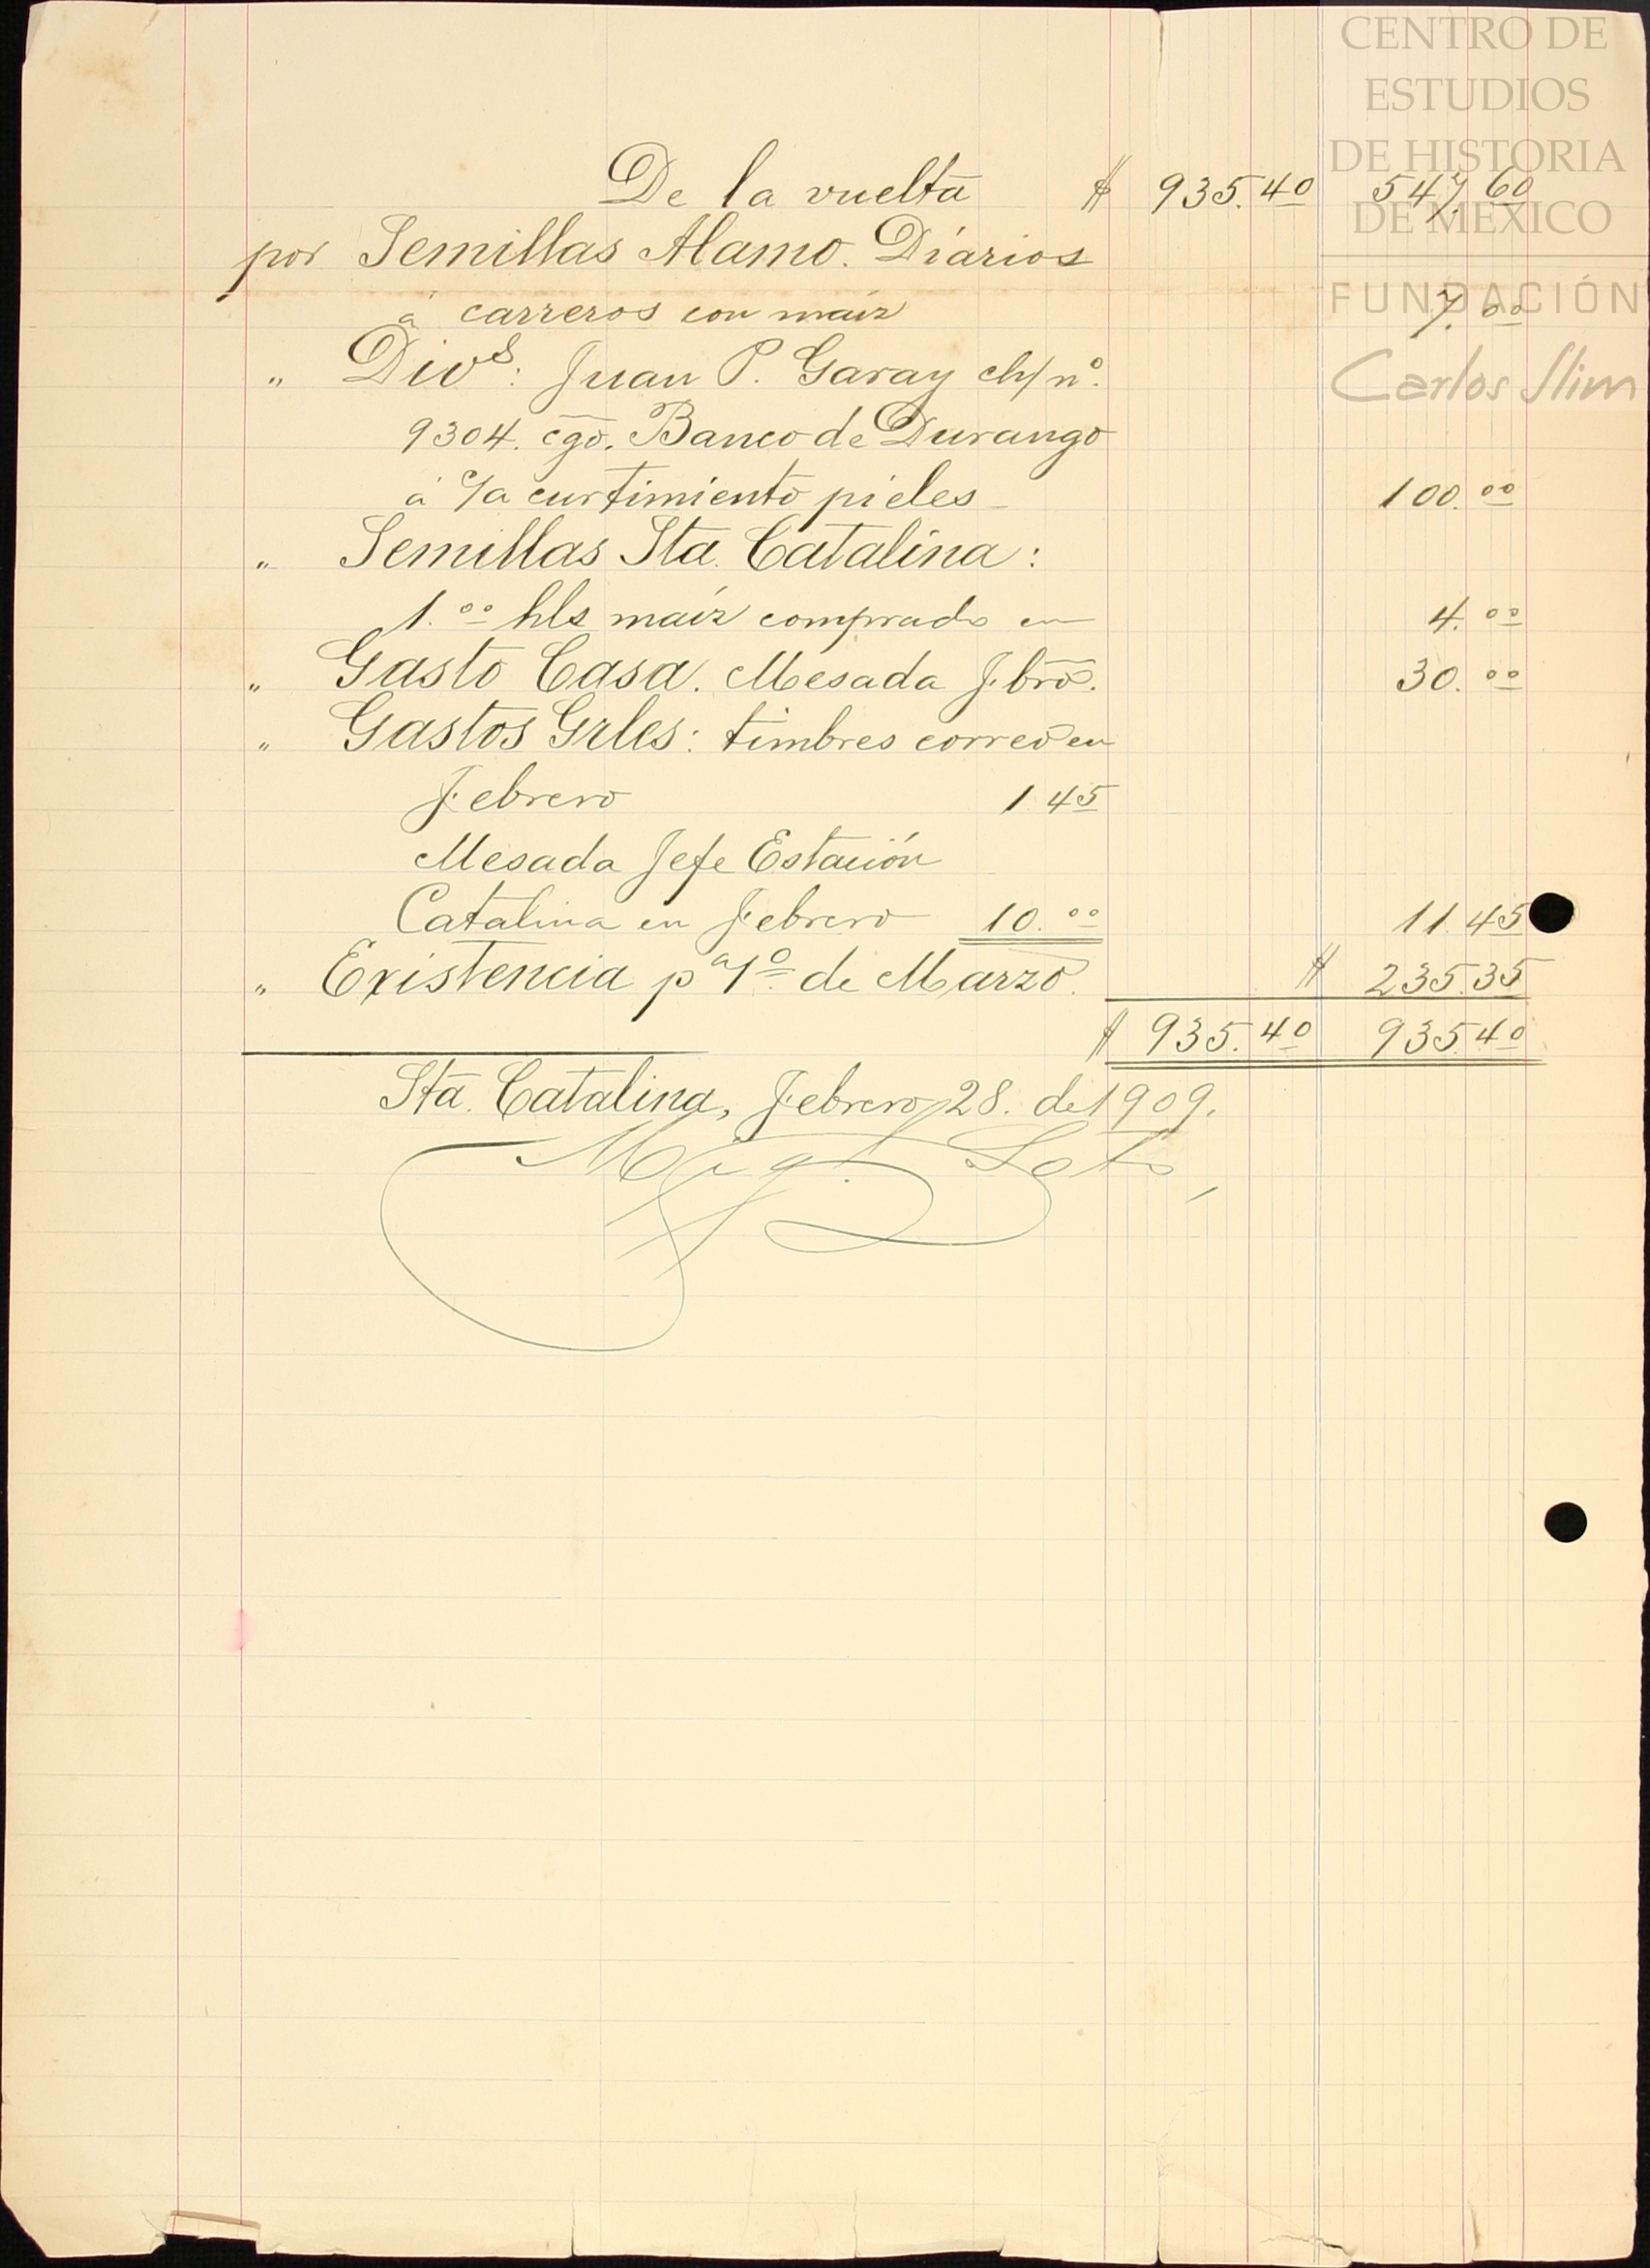 CENTRO DE
ESTUDIOS
DE HISTORIA
DE MÉXICO
FUNDACIÓN
Carlos Slim
De la vuelta $ 935.40 547.60
por Semillas Alamo. Diarios
á carreros con maíz 7.00
" Divs: Juan P. Garay ch/ nº.
9304. cgo. Banco de Durango
á c/a curtimiento pieles 100.00
" Semillas Sta. Catalina:
1.00 hls maíz comprado en 4.00
" Gasto Casa. Mesada Fbro. 30.00
" Gastos Grles: timbres correo en
Febrero 1.45
Mesada Jefe Estación
Catalina en Febrero 10.00 11.45
" Existencia pa 1º de Marzo. $ 235.35
$ 935.40 935.40
Sta. Catalina, Febrero 28. de 1909.
Mig. Soto